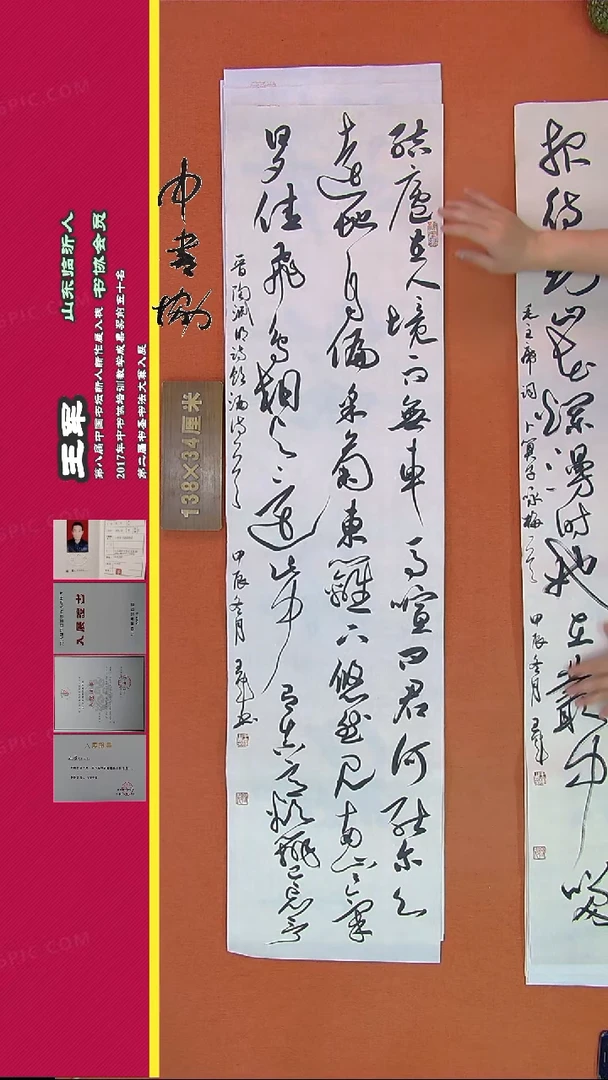 结庐在人境而无車马喧问君何能尔心
远地自偏采菊東篱下悠然见南山山气
日夕佳飛鸟相与还此中有真意欲辨已忘言
晋陶渊明诗饮酒
甲辰冬月 王军书
中书协
138×34厘米
山东临沂人
书协会员
王军
第八届中国书坛新人新作展入展
2017年中书协培训教学成果奖前五十名
待到山花烂漫时她在叢中笑
毛主席词卜算子咏梅
甲辰冬月 王军